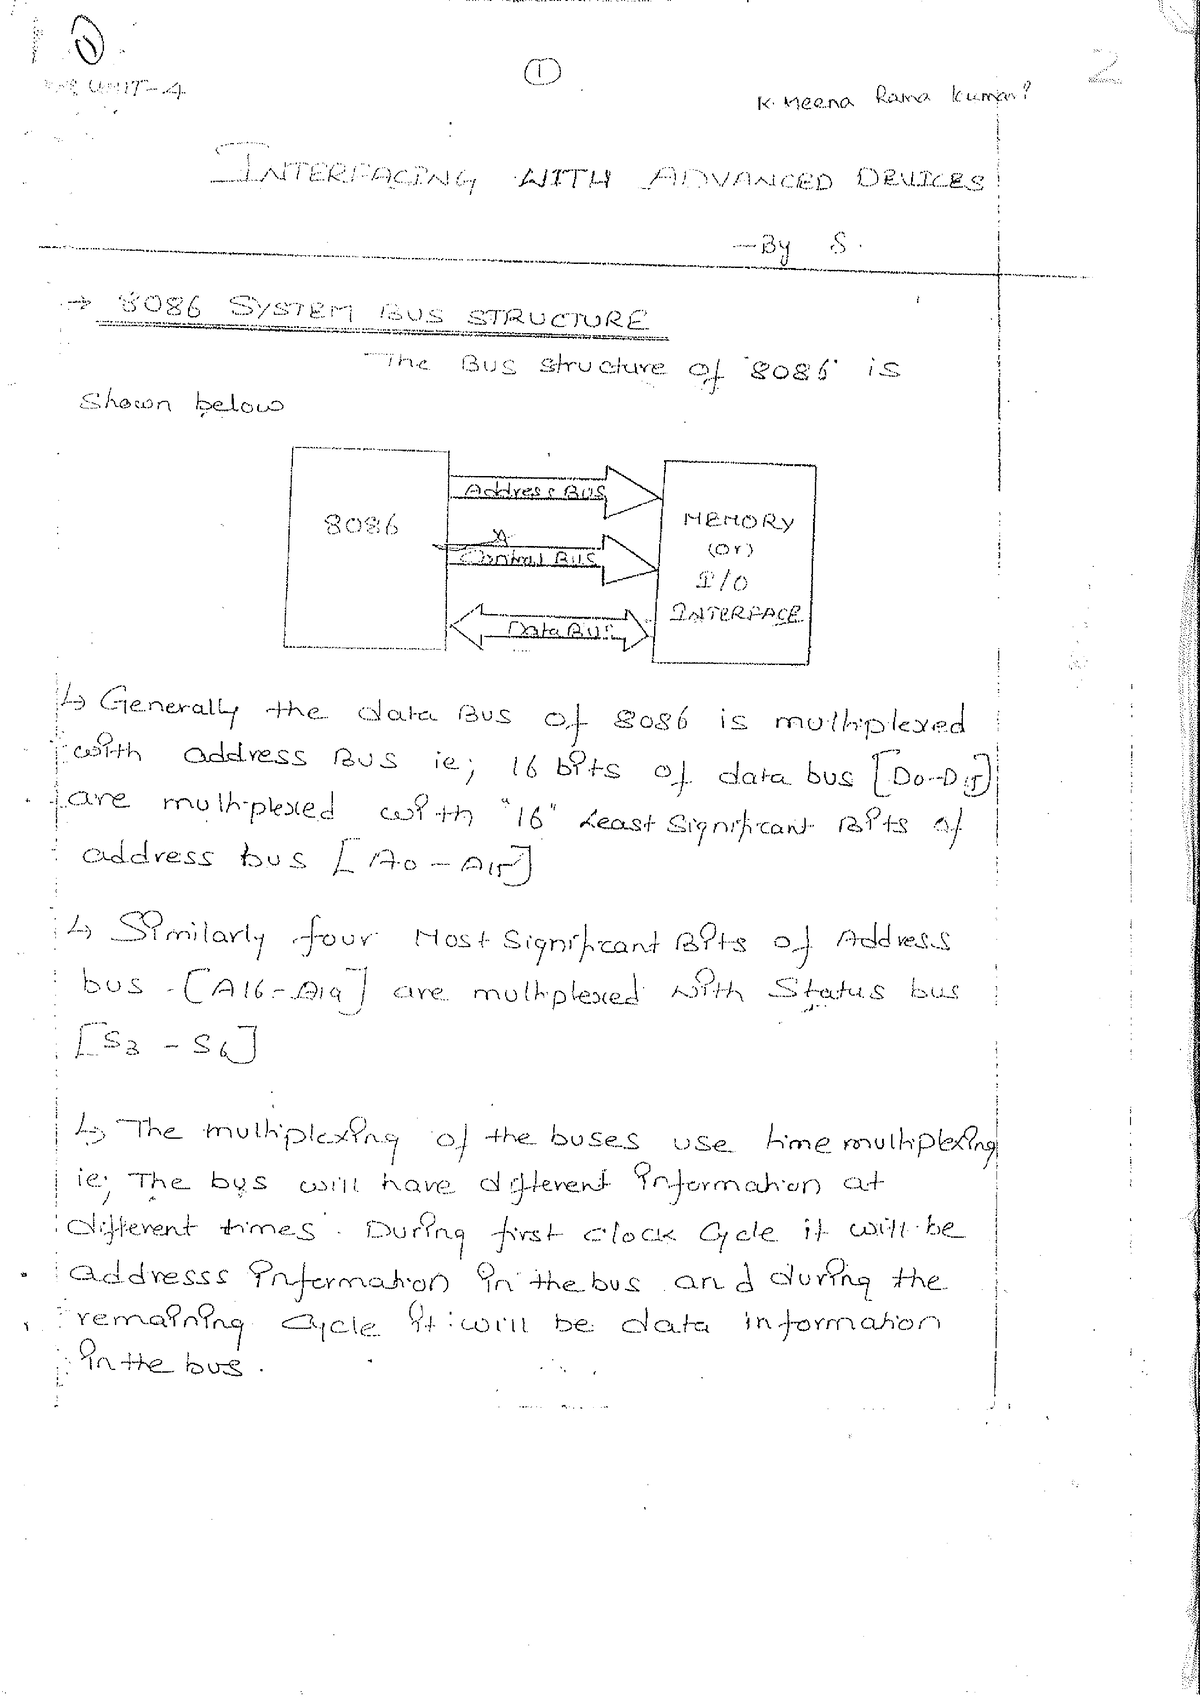 1
1
2
UNIT-4
K. Meena Rama Kumari
INTERFACING WITH ADVANCED DEVICES
—By S.
→ 8086 SYSTEM BUS STRUCTURE
The Bus structure of "8086" is
shown below
8086
Address BUS
Control BUS
Data BUS
MEMORY
(Or)
I/O
INTERFACE
↳ Generally the data Bus of 8086 is multiplexed
with address Bus ie; 16 bits of data bus [D0-D15]
are multiplexed with "16" Least Significant Bits of
address bus [A0 - A15]
↳ Similarly four Most Significant Bits of Address
bus [A16 - A19] are multiplexed with Status bus
[S3 - S6]
↳ The multiplexing of the buses use time multiplexing
ie; The bus will have different information at
different times. During first clock Cycle it will be
addresss information in the bus and during the
remaining Cycle it will be data information
in the bus.